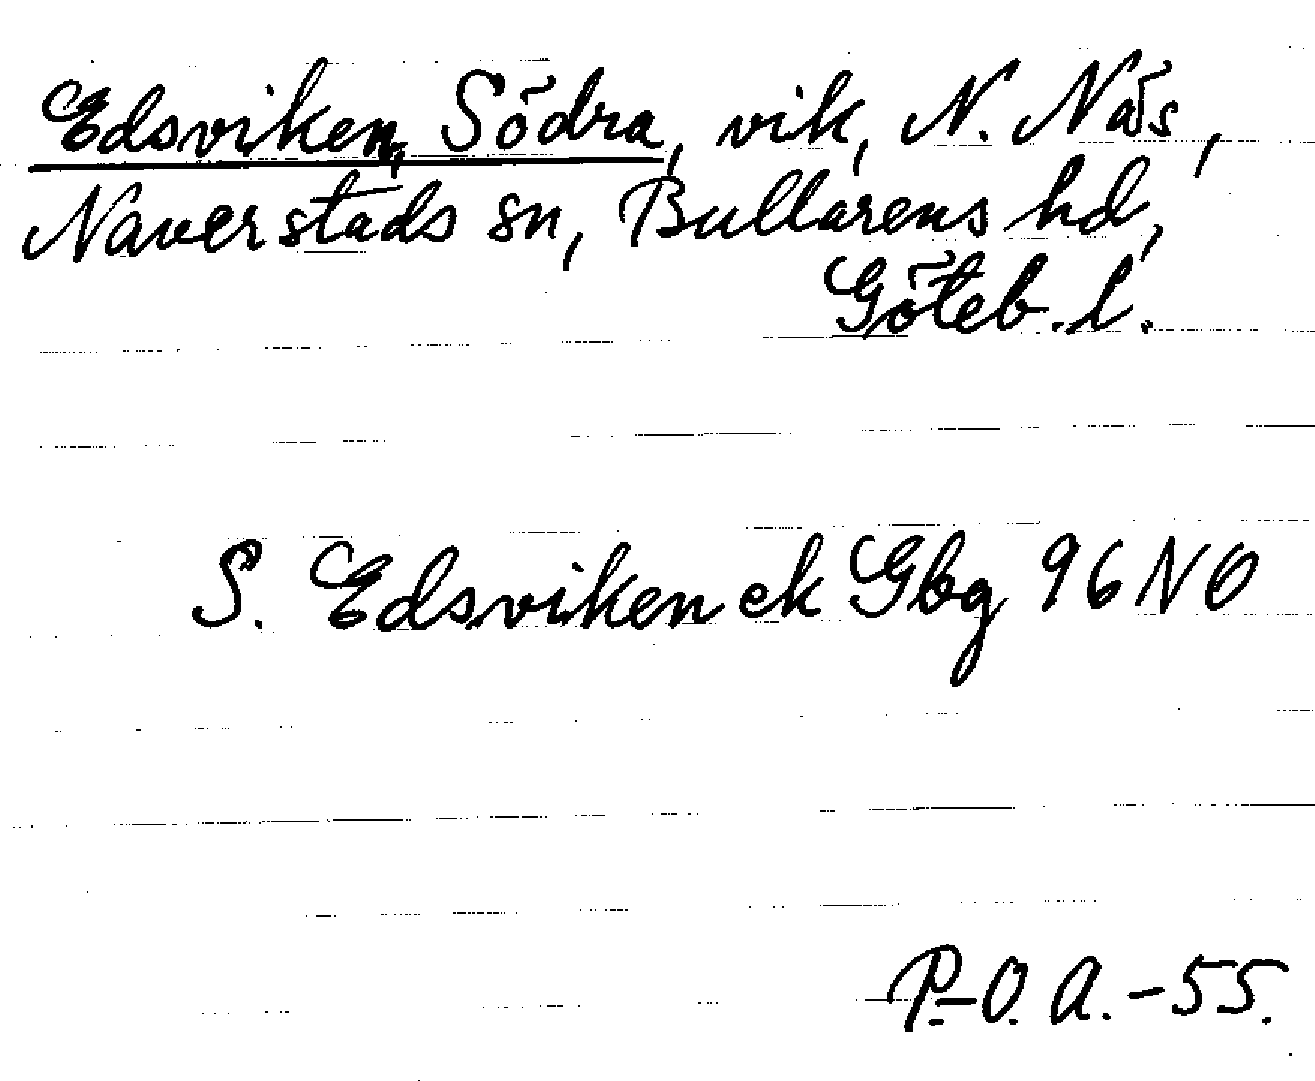 Edsviken, Södra, vik, N. Näs,
Naverstads sn, Bullarens hd,
Göteb. l.
S. Edsviken ek Gbg 96 NO
P.-O. A. -55.